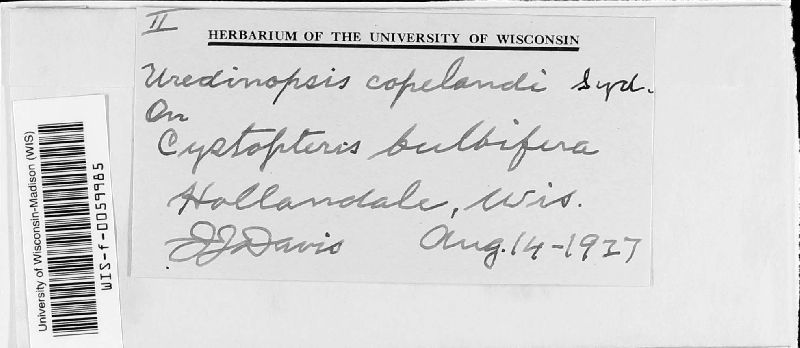 II
HERBARIUM OF THE UNIVERSITY OF WISCONSIN
Uredinopsis copelandi Syd.
On
Cystopteris bulbifera
Hollandale, Wis.
JJDavis Aug. 14-1927
University of Wisconsin-Madison (WIS)
WIS-f-0059985